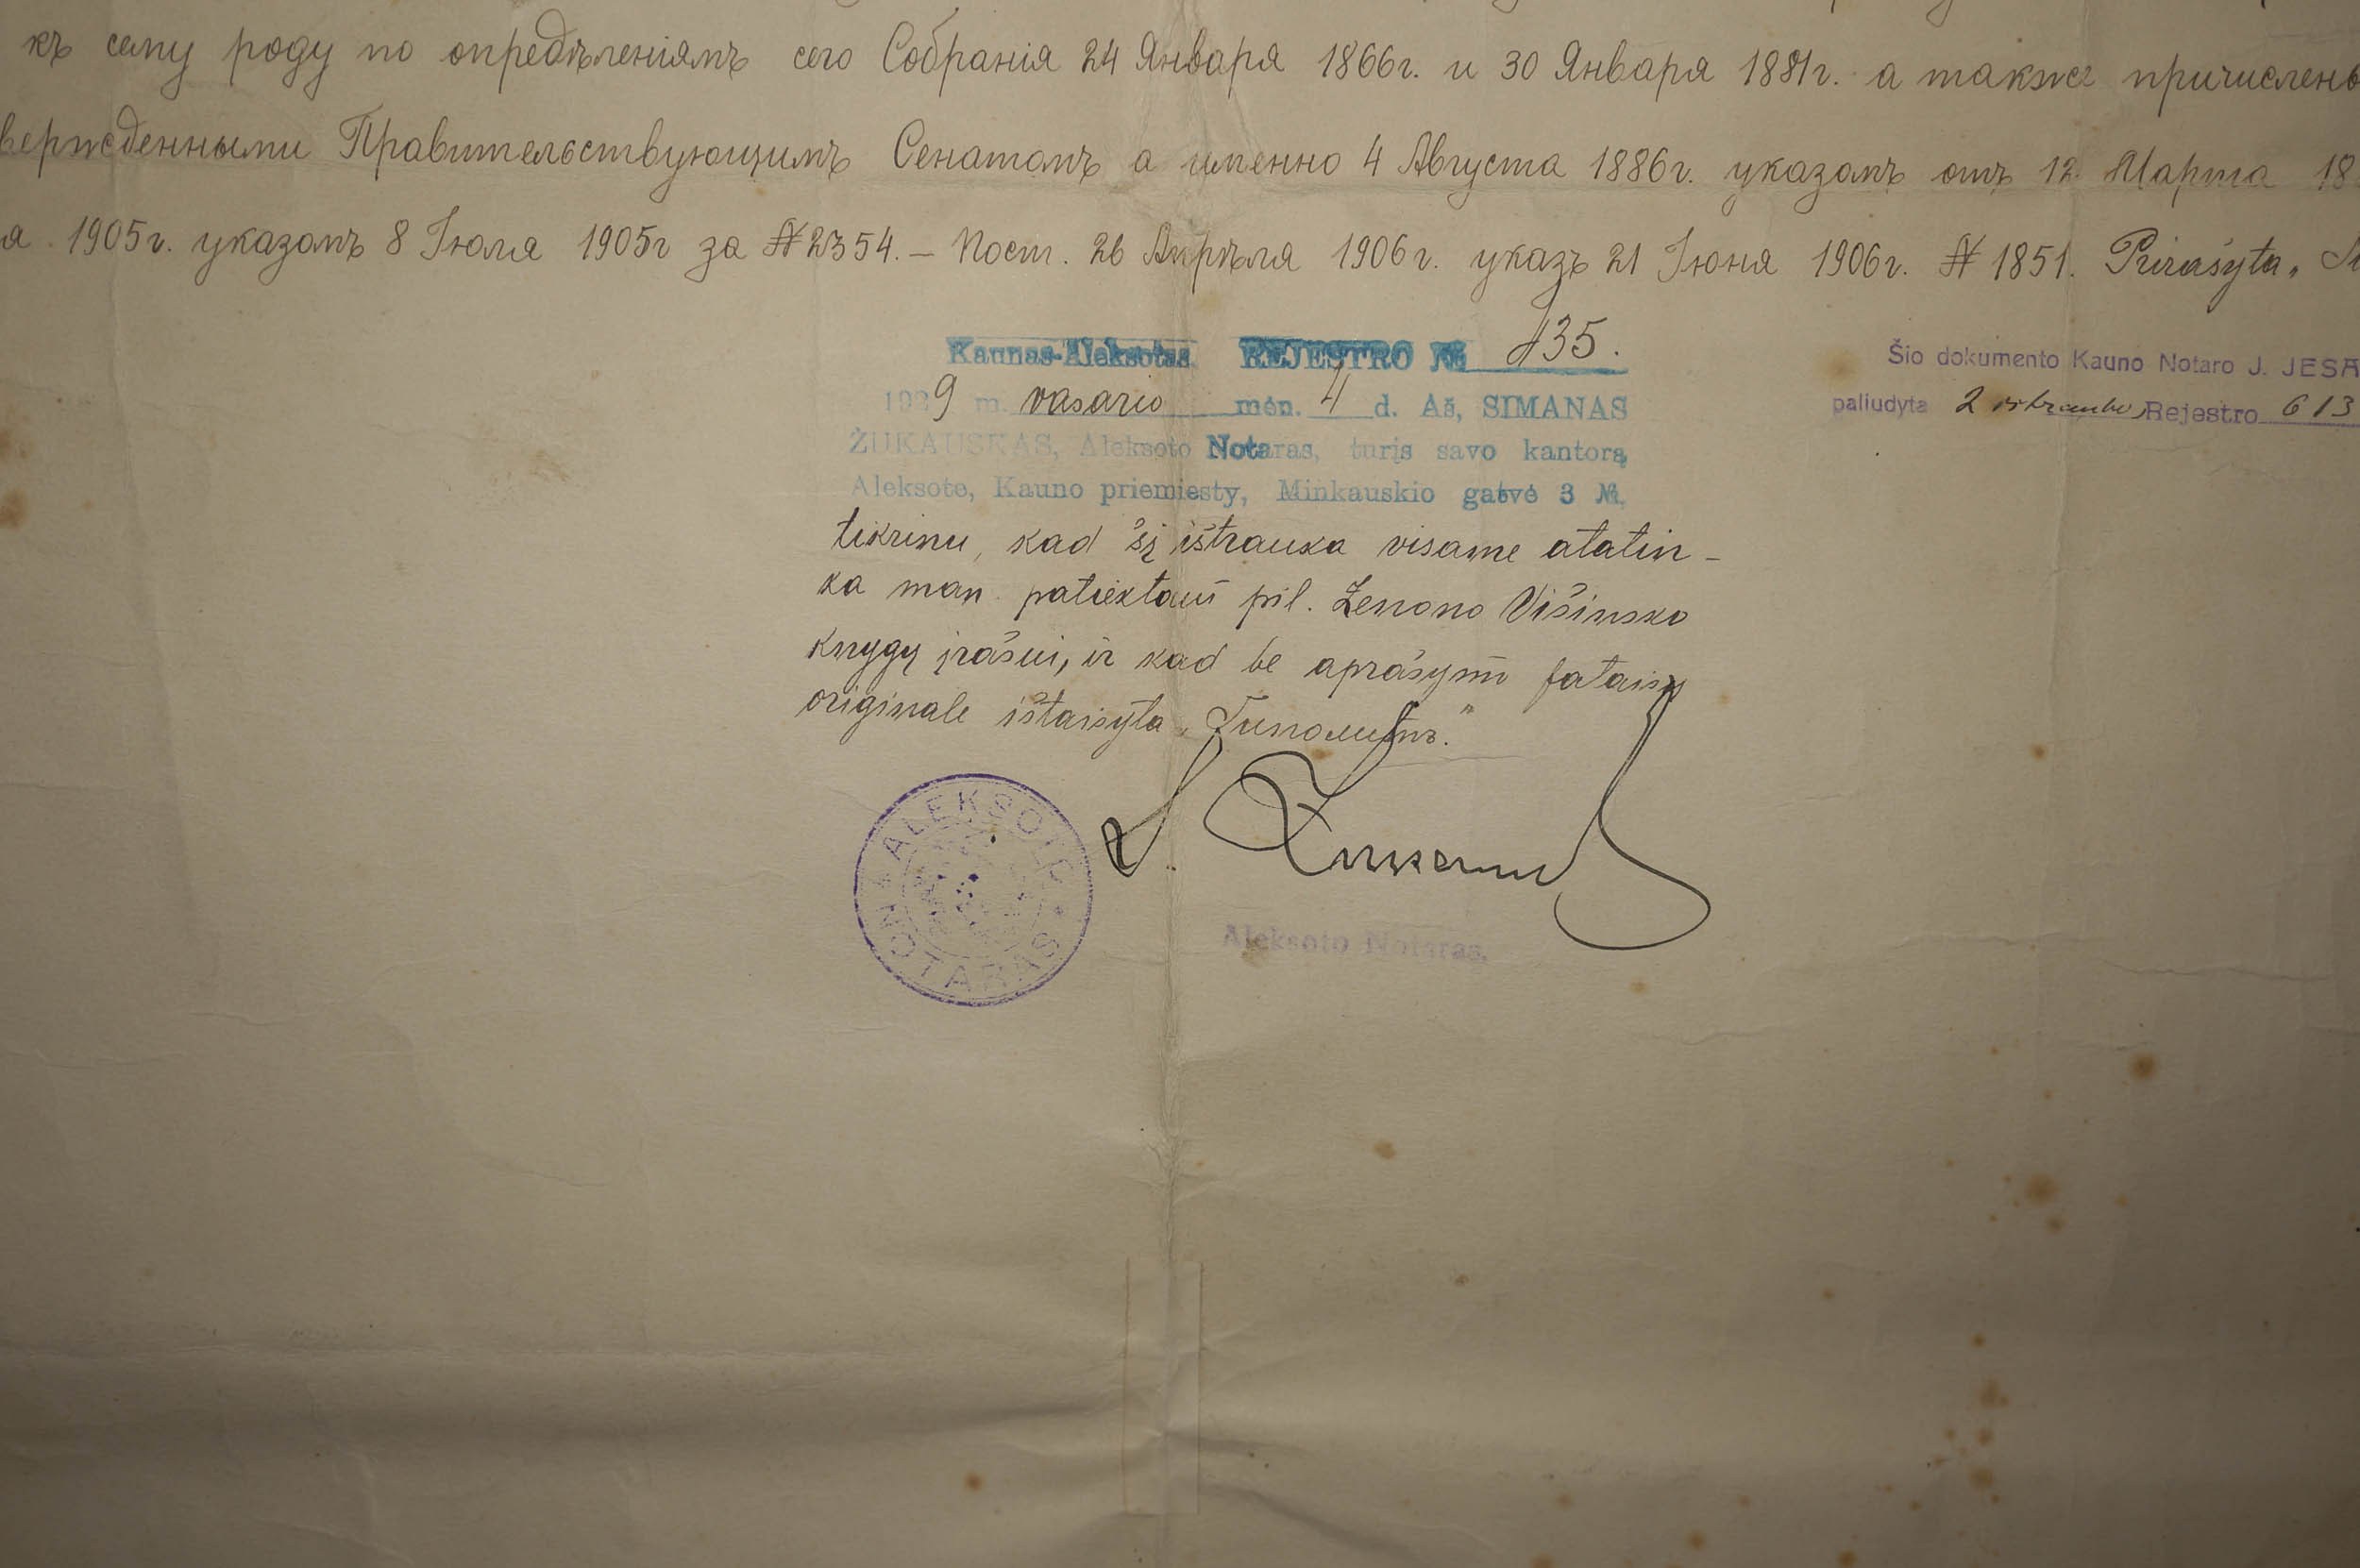 къ сему роду по опредѣленіямъ сего Собранія 24 Января 1866г. и 30 Января 1881г. а также причислены
вержденными Правительствующимъ Сенатомъ а именно 4 Августа 1886г. указомъ отъ 12 Марта 18
я 1905г. указомъ 8 Іюля 1905г за № 2354. — Пост. 26 Апрѣля 1906г. указъ 21 Іюня 1906г. № 1851. Prirašyta „
Kaunas-Aleksotas. REJESTRO № 135.
1929 m. vasario mėn. 4 d. Aš, SIMANAS
ŽUKAUSKAS, Aleksoto Notaras, turįs savo kantorą
Aleksote, Kauno priemiesty, Minkauskio gatvė 3 №,
tikrinu, kad šį ištrauka visame atatin-
ka man patiektam pil. Zenono Višinsko
knygų įrašui, ir kad be aprašymo pataisų
originale ištaisyta „Гиполитъ."
Šio dokumento Kauno Notaro J. JESA
paliudyta 2 Rejestro 613
ALEKSOTO NOTARAS
S. Žukauskas
Aleksoto Notaras.